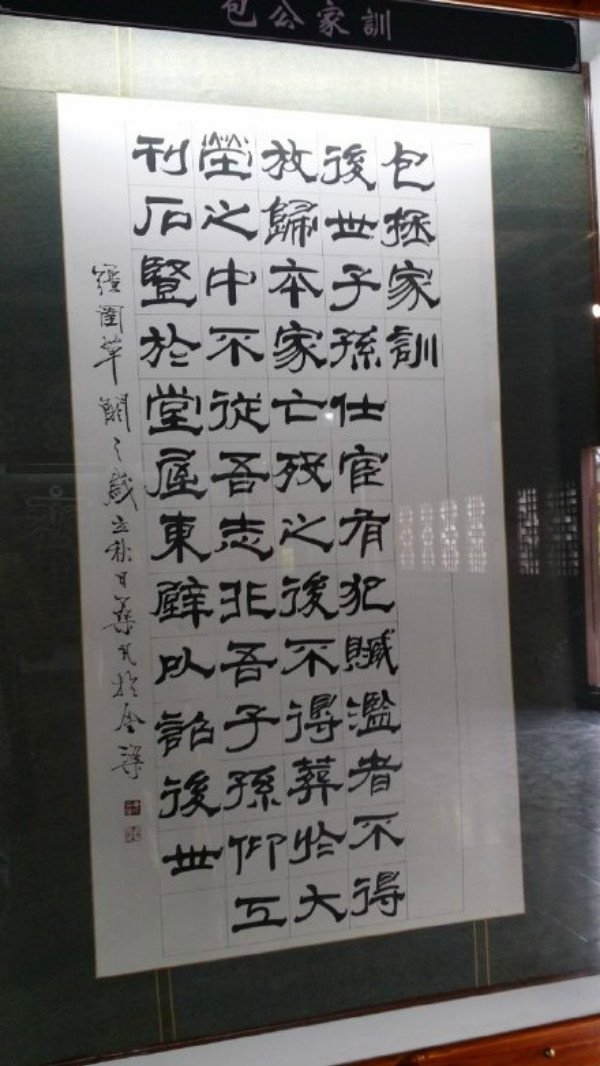 包公家訓
包拯家訓
後世子孫仕宦有犯贓濫者不得
放歸本家亡歿之後不得葬於大
塋之中不從吾志非吾子孫仰工
刊石豎於堂屋東壁以詔後世
圉之歲立秋日於